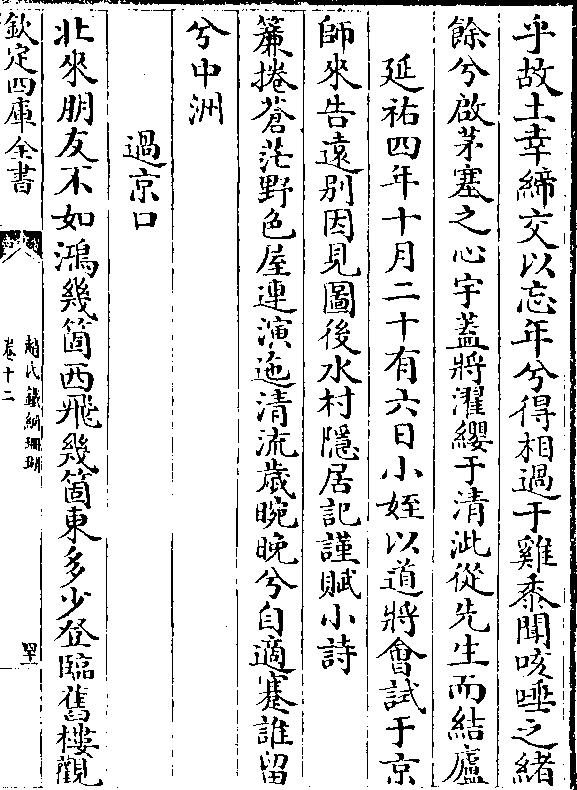 乎故土幸締交以忘年兮得相過于雞黍聞咳唾之緒
餘兮啟茅塞之心宇蓋將濯纓于清泚從先生而結廬
延祐四年十月二十有六日小姪以道將會試于京
師來告遠别因見圖後水村隱居記謹賦小詩
簾捲蒼茫野色屋連演迤清流歳晼晚兮自適蹇誰留
兮中洲
過京口
北來朋友不如鴻幾箇西飛幾箇東多少登臨舊樓觀
欽定四庫全書
趙氏鐵網珊瑚
卷十二